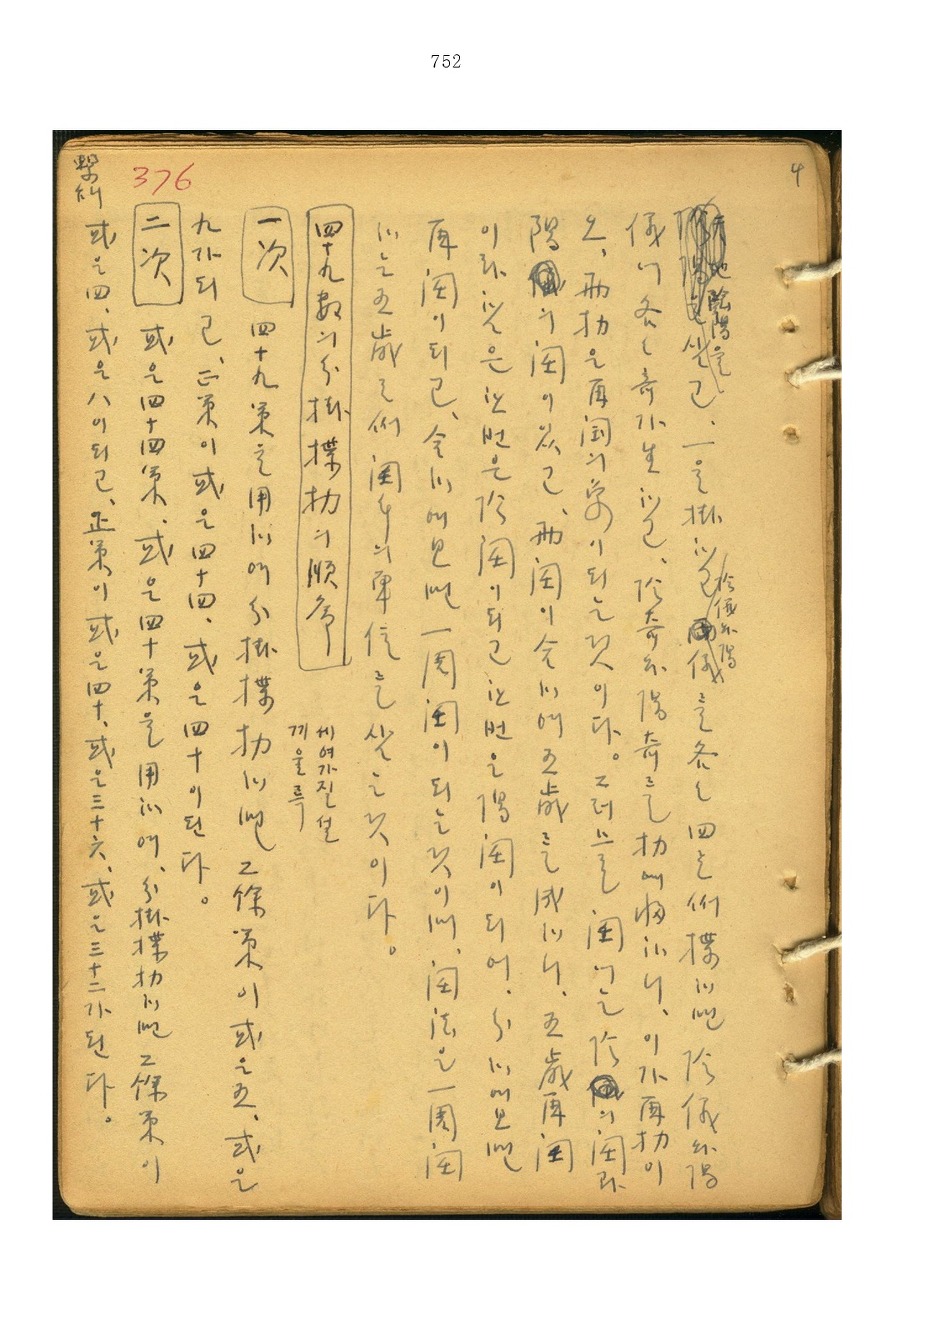 752
4
376
繫
地 陰陽을
삼고、一을 掛하고 儀를 各各 四로써 揲하면 陰儀와 陽
陰儀와 陽
儀에 各各 奇가 生하고、陰奇와 陽奇를 扐에 歸하니、이가 再扐이
오、再扐은 再閏의 象이 되는 것이다。그러므로 閏에는 陰의 閏과
陽의 閏이 있고、再閏이 合하여 五歲를 成하니、五歲再閏
이라 함은 한번은 陰閏이 되고 한번은 陽閏이 되어、分하여 보면
再閏이 되고、合하여 보면 一周閏이 되는 것이며、閏法은 一周閏
하는 五歲로써 閏 의 單位를 삼는 것이다。
四十九數의 分掛揲扐의 順序
세여가질 설
끼울 륵
一次 四十九策을 用하여 分掛揲扐하면 그 餘策이 或은 五、或은
九가 되고、正策이 或은 四十四、或은 四十이 된다。
二次 或은 四十四策、或은 四十策을 用하여、分掛揲扐하면 그 餘策이
或은 四、或은 八이 되고、正策이 或은 四十、或은 三十六、或은 三十二가 된다。